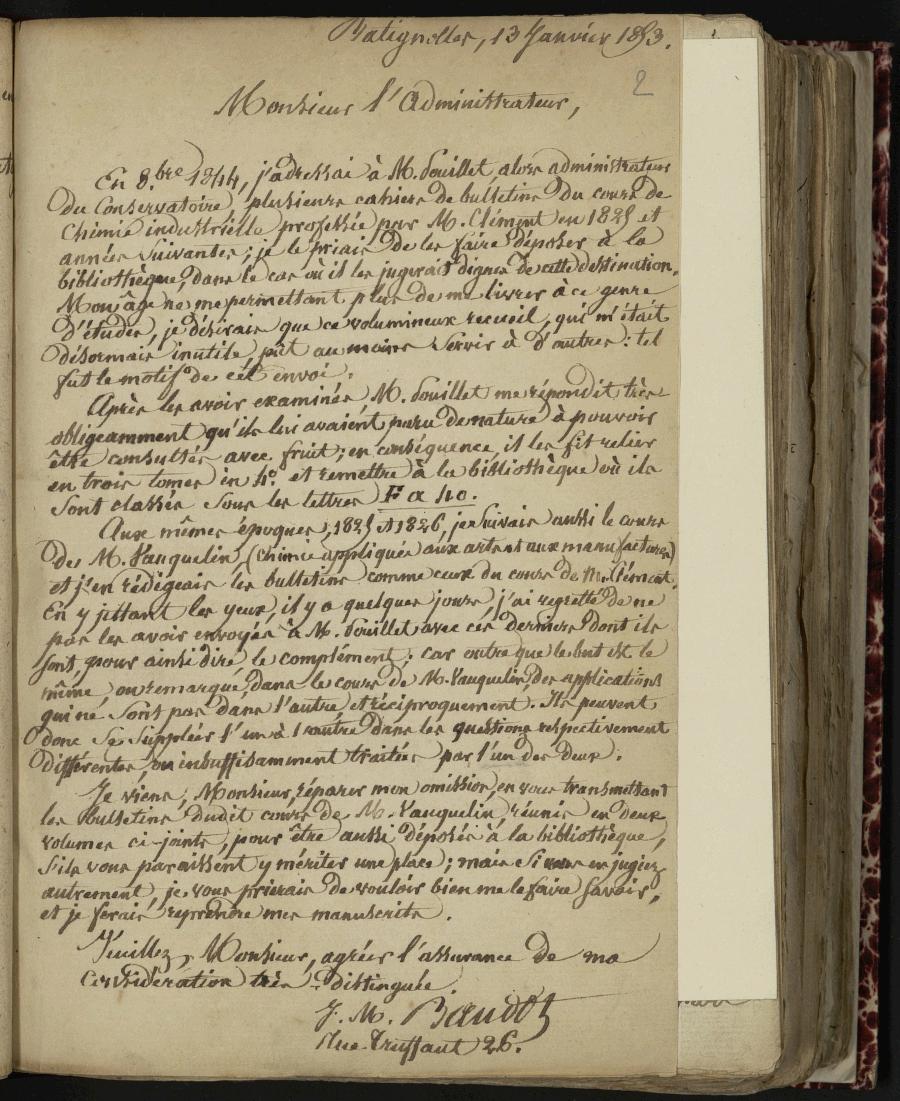 Batignolles, 13 Janvier 1853.
2
Monsieur l'Administrateur,
En 8.bre 1844, j'adressai à M. Pouillet, alors administrateur
du Conservatoire, plusieurs cahiers de bulletins du cours de
Chimie industrielle professée par M. Clément en 1825 et
années suivantes; je le priais de les faire déposer à la
bibliothèque, dans le cas où il les jugerait dignes de cette destination.
Mon âge ne me permettant plus de me livrer à ce genre
d'études, je désirais que ce volumineux recueil, qui m'était
désormais inutile, pût au moins servir à d'autres: tel
fut le motif de cet envoi.
Après les avoir examinés, M. Pouillet me répondit très
obligeamment qu'ils lui avaient paru de nature à pouvoir
être consultés avec fruit; en conséquence, il les fit relier
en trois tomes in 4.o et remettre à la bibliothèque où ils
sont classés sous les lettres F a 40.
Aux mêmes époques, 1825 et 1826, je suivais aussi le cours
de M. Vauquelin, (chimie appliquée aux arts et aux manufactures)
et j'en rédigeais les bulletins comme ceux du cours de M. Clément.
En y jettant les yeux, il y a quelques jours, j'ai regretté de ne
pas les avoir envoyés à M. Pouillet avec ces derniers dont ils
sont, pour ainsi dire, le complément; car outre que le but est le
même, on remarque, dans le cours de M. Vauquelin, des applications
qui ne sont pas dans l'autre et réciproquement. Ils peuvent
donc se suppléer l'un à l'autre dans les questions respectivement
différentes, ou insuffisamment traitées par l'un des deux.
Je viens, Monsieur, réparer mon omission, en vous transmettant
les bulletins dudit cours de M. Vauquelin, réunis en deux
volumes ci-joints, pour être aussi déposés à la bibliothèque,
s'ils vous paraissent y mériter une place; mais si vous en jugiez
autrement, je vous prierais de vouloir bien me le faire savoir,
et je ferais reprendre mes manuscrits.
Veuillez, Monsieur, agréer l'assurance de ma
Considération très-distinguée.
J. M. Baudot
Rue Truffaut 26.